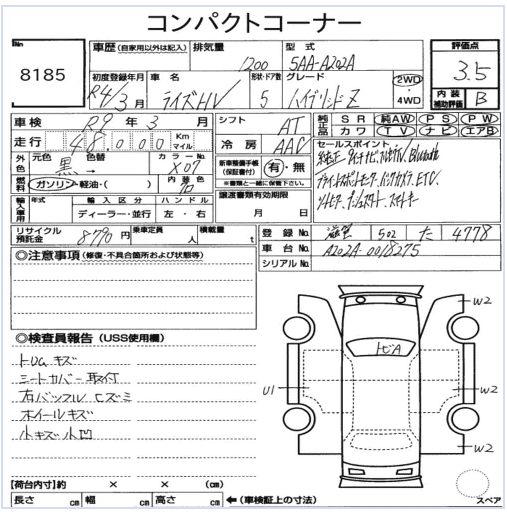 コンパクトコーナー
No 8185
車歴 (自家用以外は記入) 排気量 1200 型式 5AA-A202A
評価点 3.5
初度登録年月 R4/3月 車名 ライズHV 形状・ドア数 5 グレード ハイブリッドZ 2WD・4WD
内装補助評価 B
車検 R9年3月 シフト AT
純正品 SR 純AW PS PW
カワ TV ナビ エアB
走行 48,000 Km マイル 冷房 AAC
セールスポイント
外色 元色 黒 色替 カラーNo. X07 内装色
新車整備手帳(保証書付) 有・無
※書類と一緒に保管下さい。
燃料 ガソリン・軽油・( )
輸入車用 年式 輸入区分 ディーラー・並行 ハンドル 左・右
譲渡書類有効期限 月 日
リサイクル預託金 8790円 乗車定員 人 積載量 t
登録No. 滋賀 502 た 4778
車台No. A202A-0018275
シリアルNo.
◎注意事項(修復・不具合箇所および状態等)
◎検査員報告(USS使用欄)
トDGキズ
シートカバー取付
右バックフルクスミ
ホイールキズ
小キズ小凹
トビA
W2
U1
W2
W2
スペア
【荷台内寸】約 × × (cm)
長さ cm 幅 cm 高さ cm ←(車検証上の寸法)